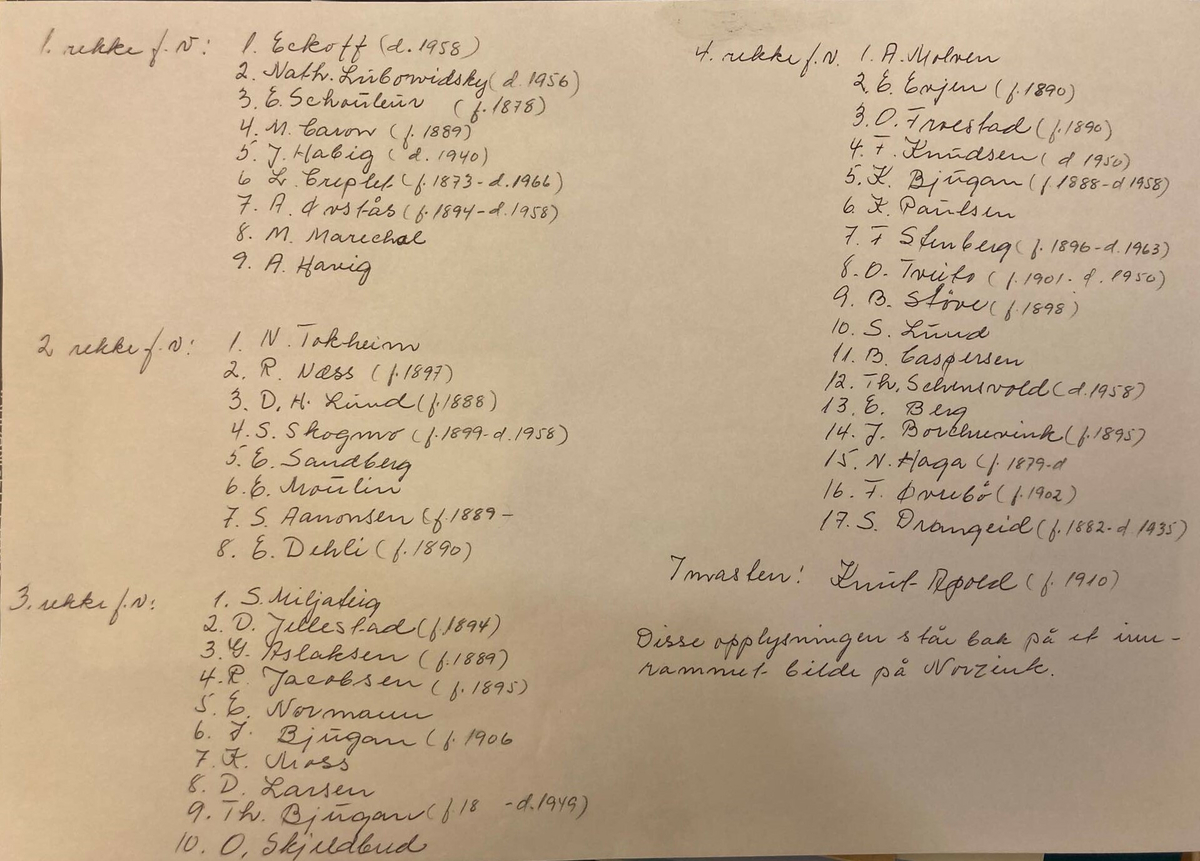 1. rekke f.v: 1. Eckoff (d. 1958)
2. Nath. Lubowidsky (d. 1956)
3. E. Schouleur (f. 1878)
4. M. Caron (f. 1889)
5. J. Habig (d. 1940)
6 Lr. Creplet (f. 1873-d. 1966)
7. A. Øvstås (f. 1894-d. 1958)
8. M. Marechal
9. A. Havig
2 rekke f.v: 1. N. Tokheim
2. R. Næss (f. 1897)
3. D. H. Lund (f. 1888)
4. S. Skogmo (f. 1899-d. 1958)
5. E. Sandberg
6. E. Moulin
7. S. Aanonsen (f. 1889 -
8. E. Dehli (f. 1890)
3. rekke f.v: 1. S. Miljateig
2. D. Jellestad (f. 1894)
3. G. Aslaksen (f. 1889)
4. R. Jacobsen (f. 1895)
5. E. Normann
6. J. Bjugan (f. 1906
7. K. Moss
8. D. Larsen
9. Th. Bjugan (f. 18 -d. 1949)
10. O. Skjeldbred
4. rekke f.v. 1. A. Molven
2. E. Evjen (f. 1890)
3. O. Froestad (f. 1890)
4. F. Knudsen (d 1950)
5. K. Bjugan (f. 1888-d 1958)
6. K. Paulsen
7. F Stenberg (f. 1896-d. 1963)
8. O. Tveito (f. 1901-d. 1950)
9. B. Støve (f. 1898)
10. S. Lund
11. B. Caspersen
12. Th. Schensvold (d. 1958)
13. E. Berg
14. J. Borchrevink (f. 1895)
15. N. Haga (f. 1879-d
16. F. Øvrebø (f. 1902)
17. S. Drangeid (f. 1882-d. 1935)
I masten: Knut Apold (f. 1910)
Disse opplysningen står bak på et inn-
rammet bilde på Norzink.